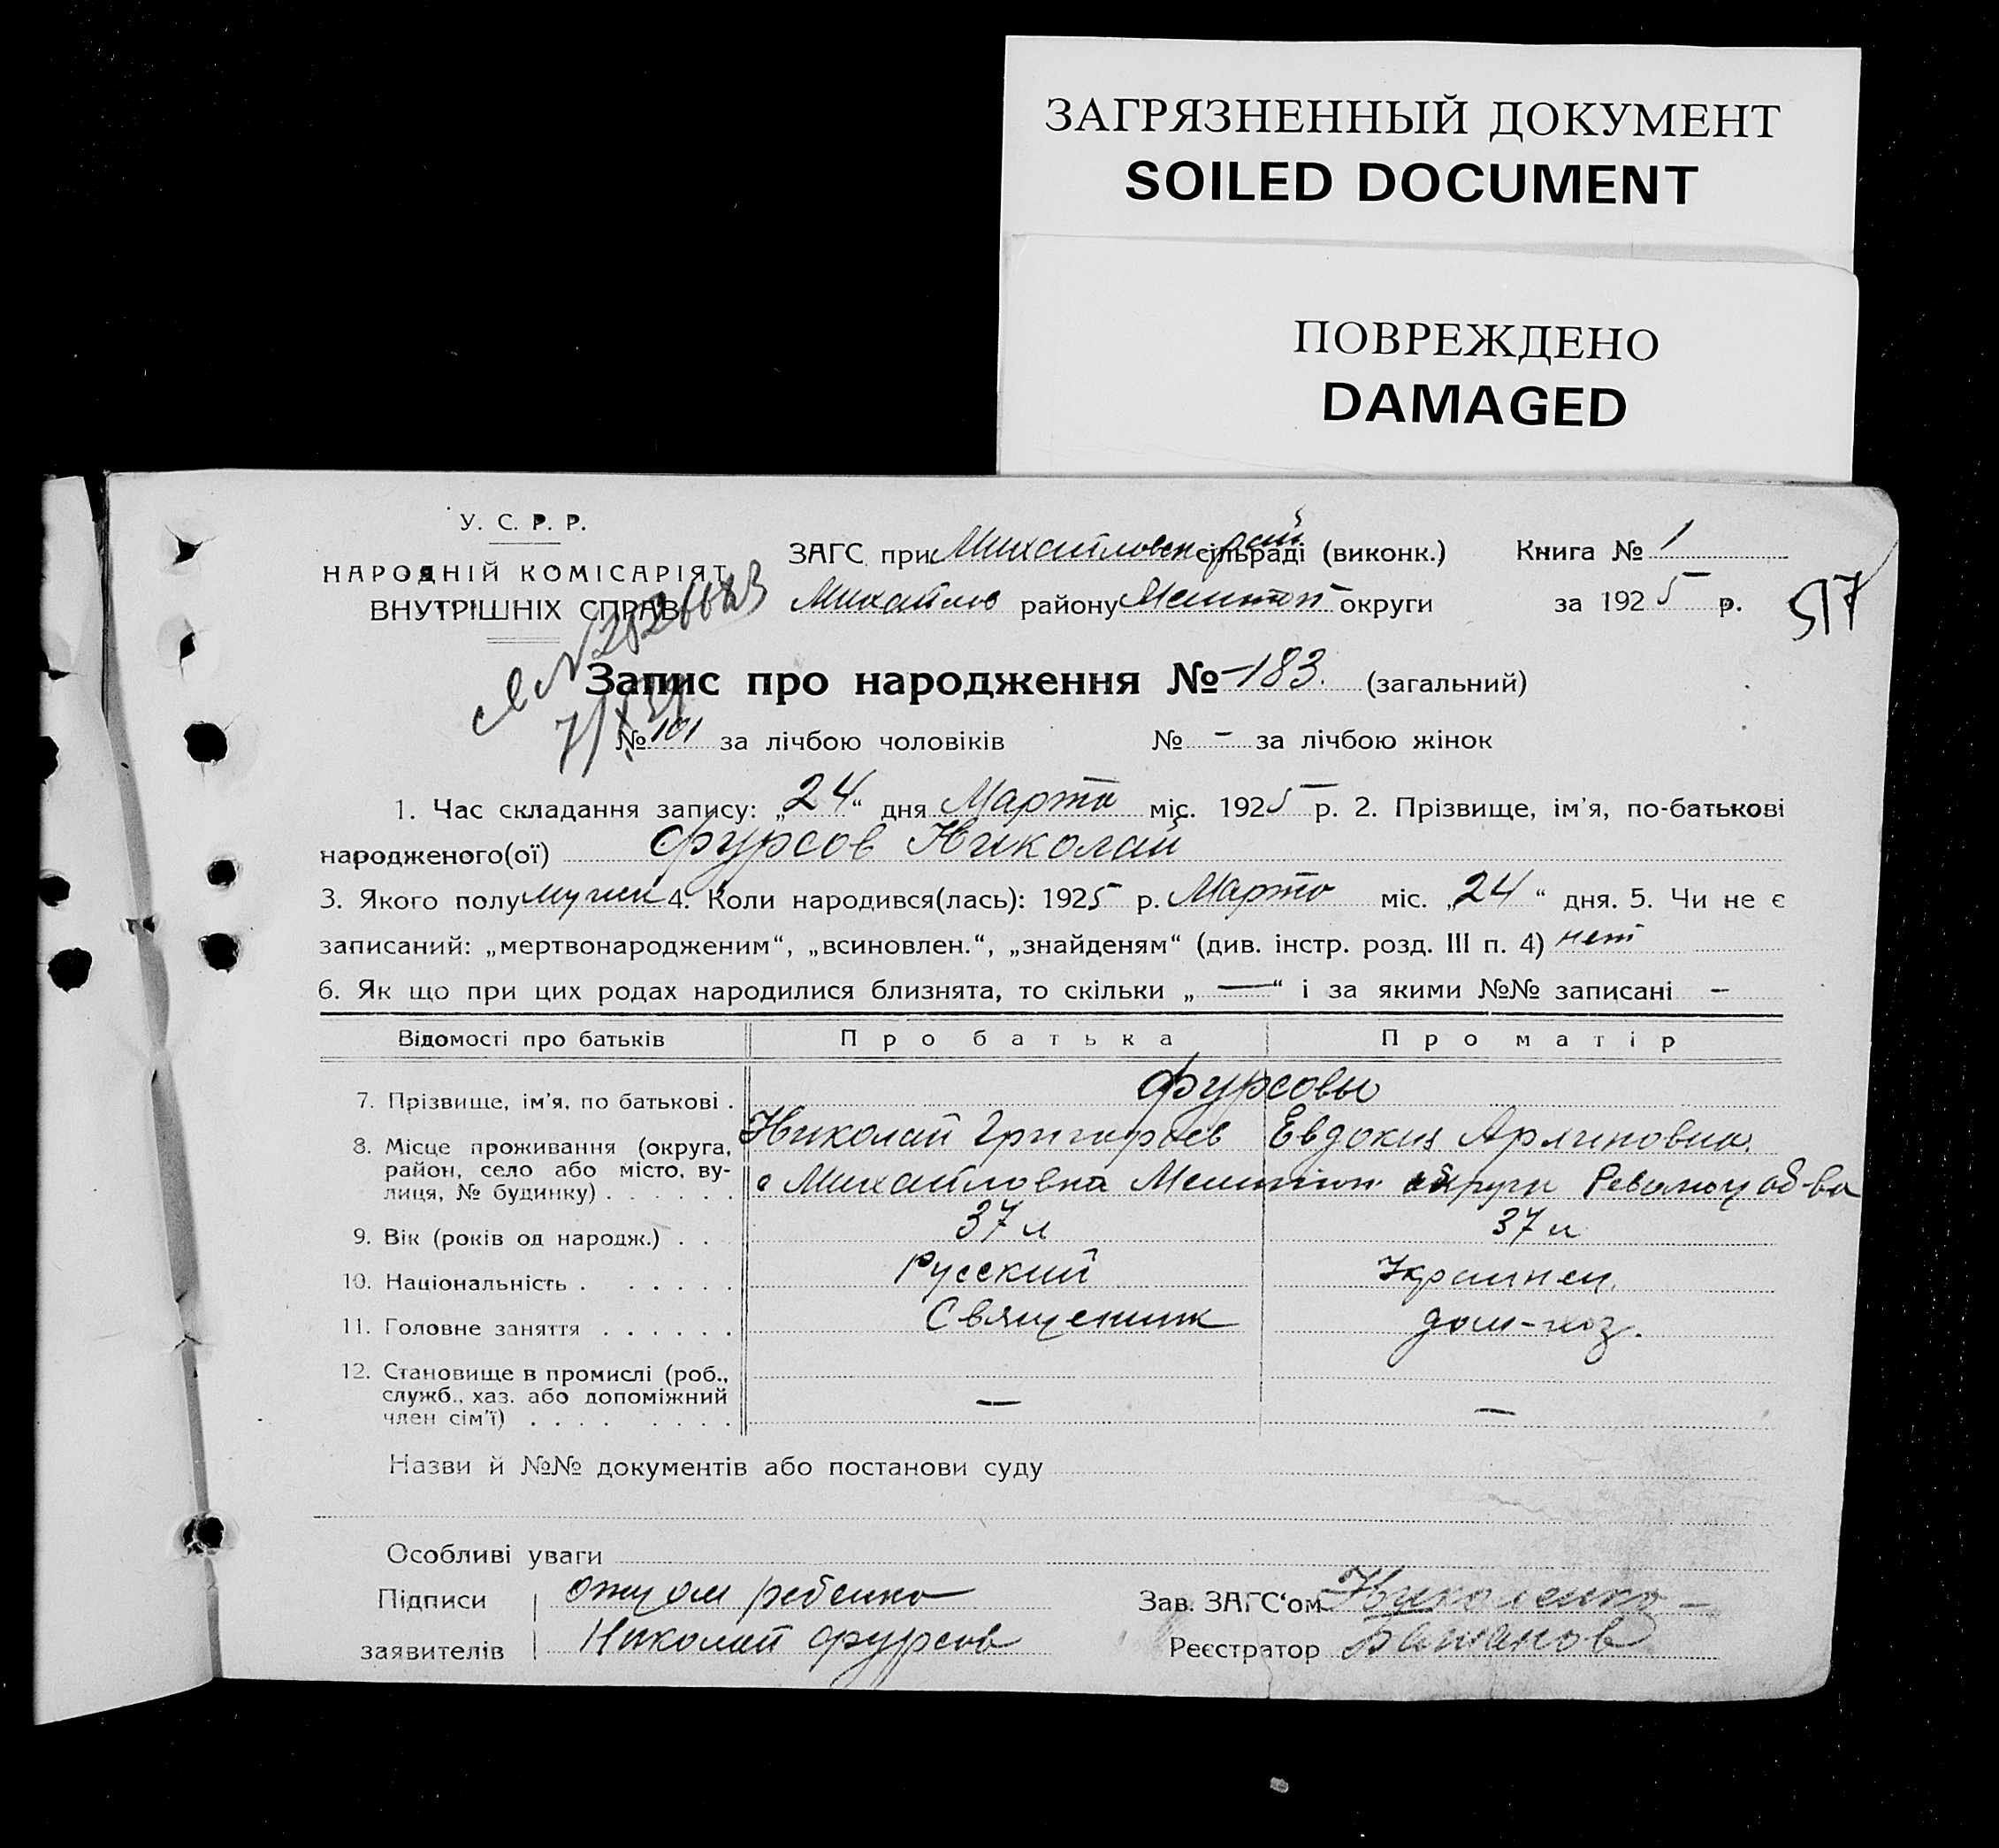 ЗАГРЯЗНЕННЫЙ ДОКУМЕНТ
SOILED DOCUMENT
ПОВРЕЖДЕНО
DAMAGED
У. С. Р. Р.
НАРОДНІЙ КОМІСАРІЯТ
ВНУТРІШНІХ СПРАВ
ЗАГС при Михайловск рай сільраді (виконк.) Книга № 1
Михайлов району Мелитоп округи за 1925 р.
517
Запис про народження № -183. (загальний)
№ 101 за лічбою чоловіків № - за лічбою жінок
1. Час складання запису: „24“ дня Марта міс. 1925 р. 2. Прізвище, ім'я, по-батькові
народженого(ої) Фурсов Николай
3. Якого полу мужск 4. Коли народився(лась): 1925 р. Марта міс. „24“ дня. 5. Чи не є
записаний: „мертвонародженим“, „всиновлен.“, „знайденям“ (див. інстр. розд. III п. 4) нет
6. Як що при цих родах народилися близнята, то скільки „—“ і за якими №№ записані -
Відомості про батьків Про батька Про матір
7. Прізвище, ім'я, по батькові . Фурсовы
Николай Григорьев Евдокия
8. Місце проживання (округа, район, село або місто, вулиця, № будинку) . . . . . . с Михайловка Мелитоп округи Революц об-ва
9. Вік (років од народж.) . . 37 л 37 л
10. Національність . . . . . . Русский Украинец.
11. Головне заняття . . . . . . Священник дом-хоз.
12. Становище в промислі (роб., служб., хаз. або допоміжний член сім'ї) . . . . . . . . — —
Назви й №№ документів або постанови суду
Особливі уваги
Підписи отцом ребенка Зав. ЗАГС'ом Николенко
заявителів Николай Фурсов Реєстратор Бажанов